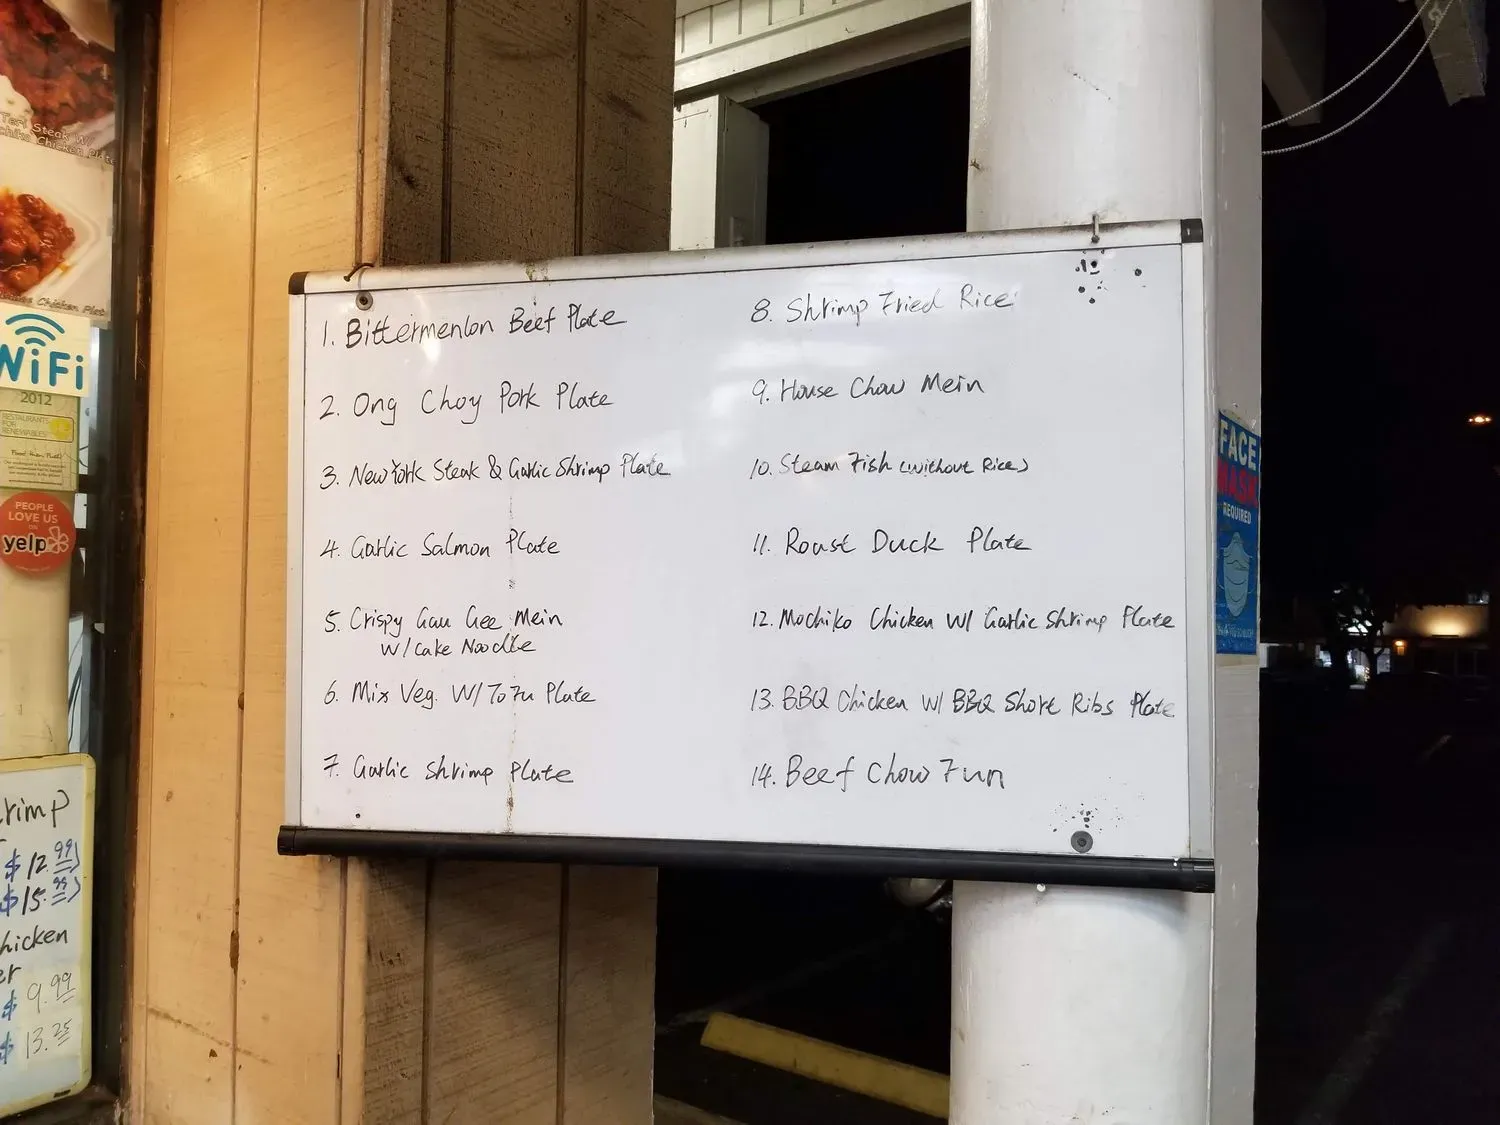 Teri Steak W/
Chicken Plate
Chicken Plate
WiFi
2012
RESTAURANTS
FOR
RENEWABLES
PEOPLE
LOVE US
ON
yelp
rimp
$12.99)
$15.95)
hicken
er
$9.99
$13.25
1. Bittermenlon Beef Plate
2. Ong Choy Pork Plate
3. New York Steak & Garlic Shrimp Plate
4. Garlic Salmon Plate
5. Crispy Gau Gee Mein
W/Cake Noodle
6. Mix Veg. W/ Tofu Plate
7. Garlic Shrimp Plate
8. Shrimp Fried Rice
9. House Chow Mein
10. Steam Fish (without Rice)
11. Roast Duck Plate
12. Mochiko Chicken W/ Garlic Shrimp Plate
13. BBQ Chicken W/ BBQ Short Ribs Plate
14. Beef Chow Fun
FACE
MASK
REQUIRED